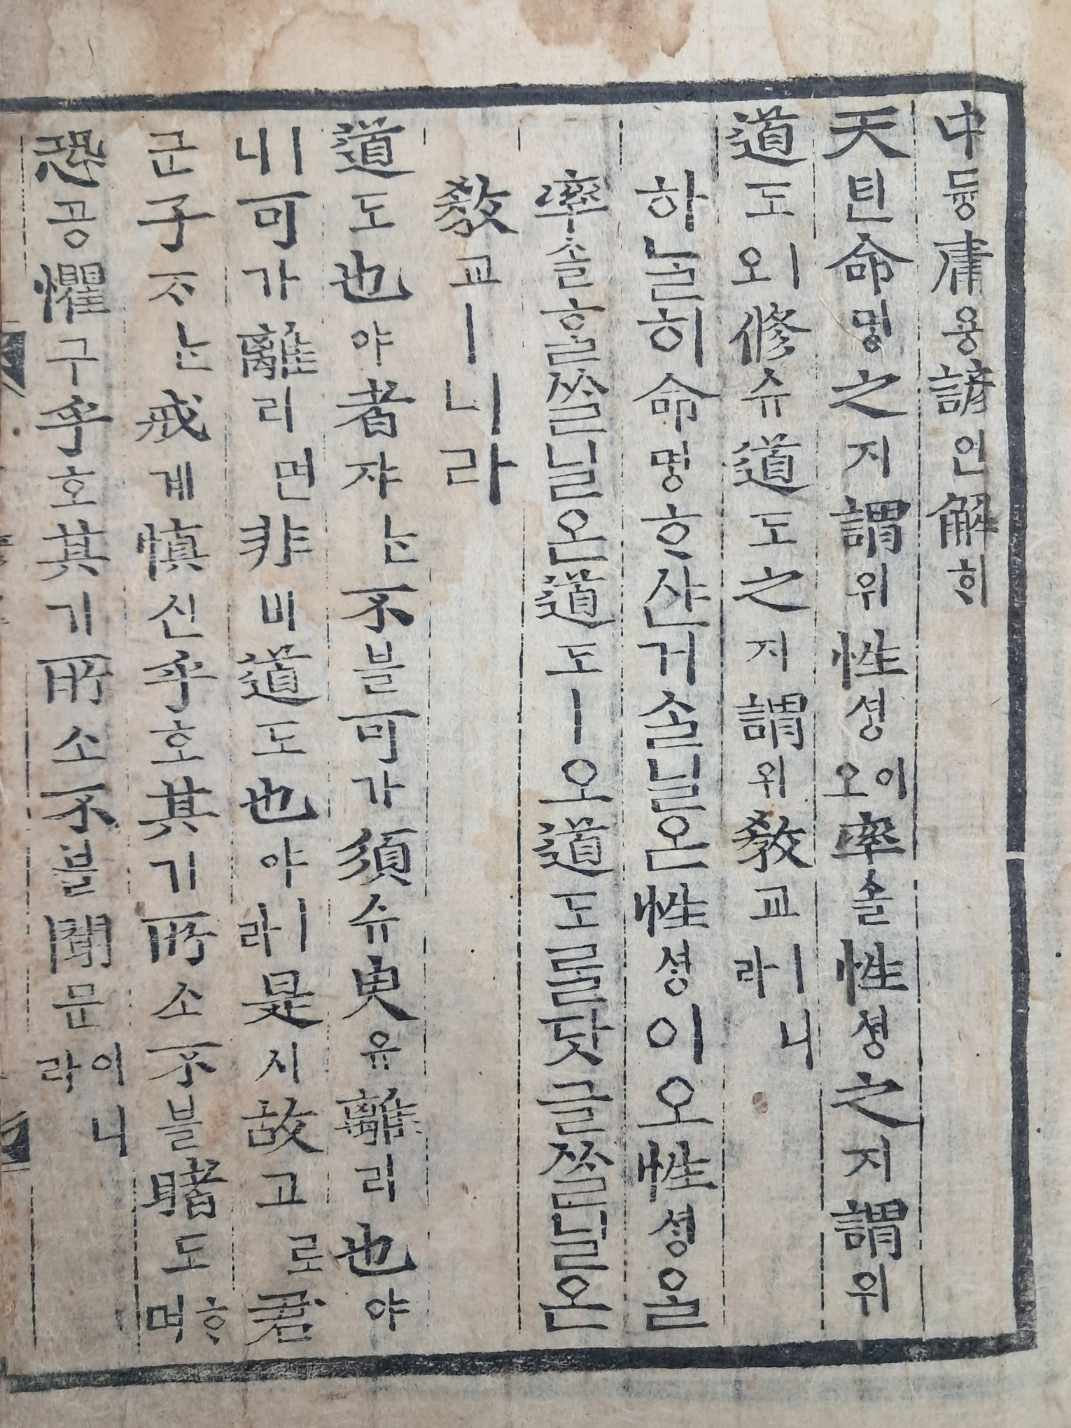 中듕庸용諺언解ᄒᆡ
天텬命명之지謂위性셩이오率솔性셩之지謂위
道도ㅣ오修슈道도之지謂위敎교ㅣ니라
하ᄂᆞᆯ히命명ᄒᆞ샨거ᄉᆞᆯ닐온性셩이오性셩을
率솔ᄒᆞᆯᄊᆞᆯ닐온道도ㅣ오道도ᄅᆞᆯ닷글ᄊᆞᆯ닐온
敎교ㅣ니라
道도也야者쟈ᄂᆞᆫ不블可가須슈臾유離리也야
ㅣ니可가離리면非비道도也야ㅣ라是시故고로君
군子ᄌᆞᄂᆞᆫ戒계愼신乎호其기所소不블睹도ᄒᆞ며
恐공懼구乎호其기所소不블聞문이니라